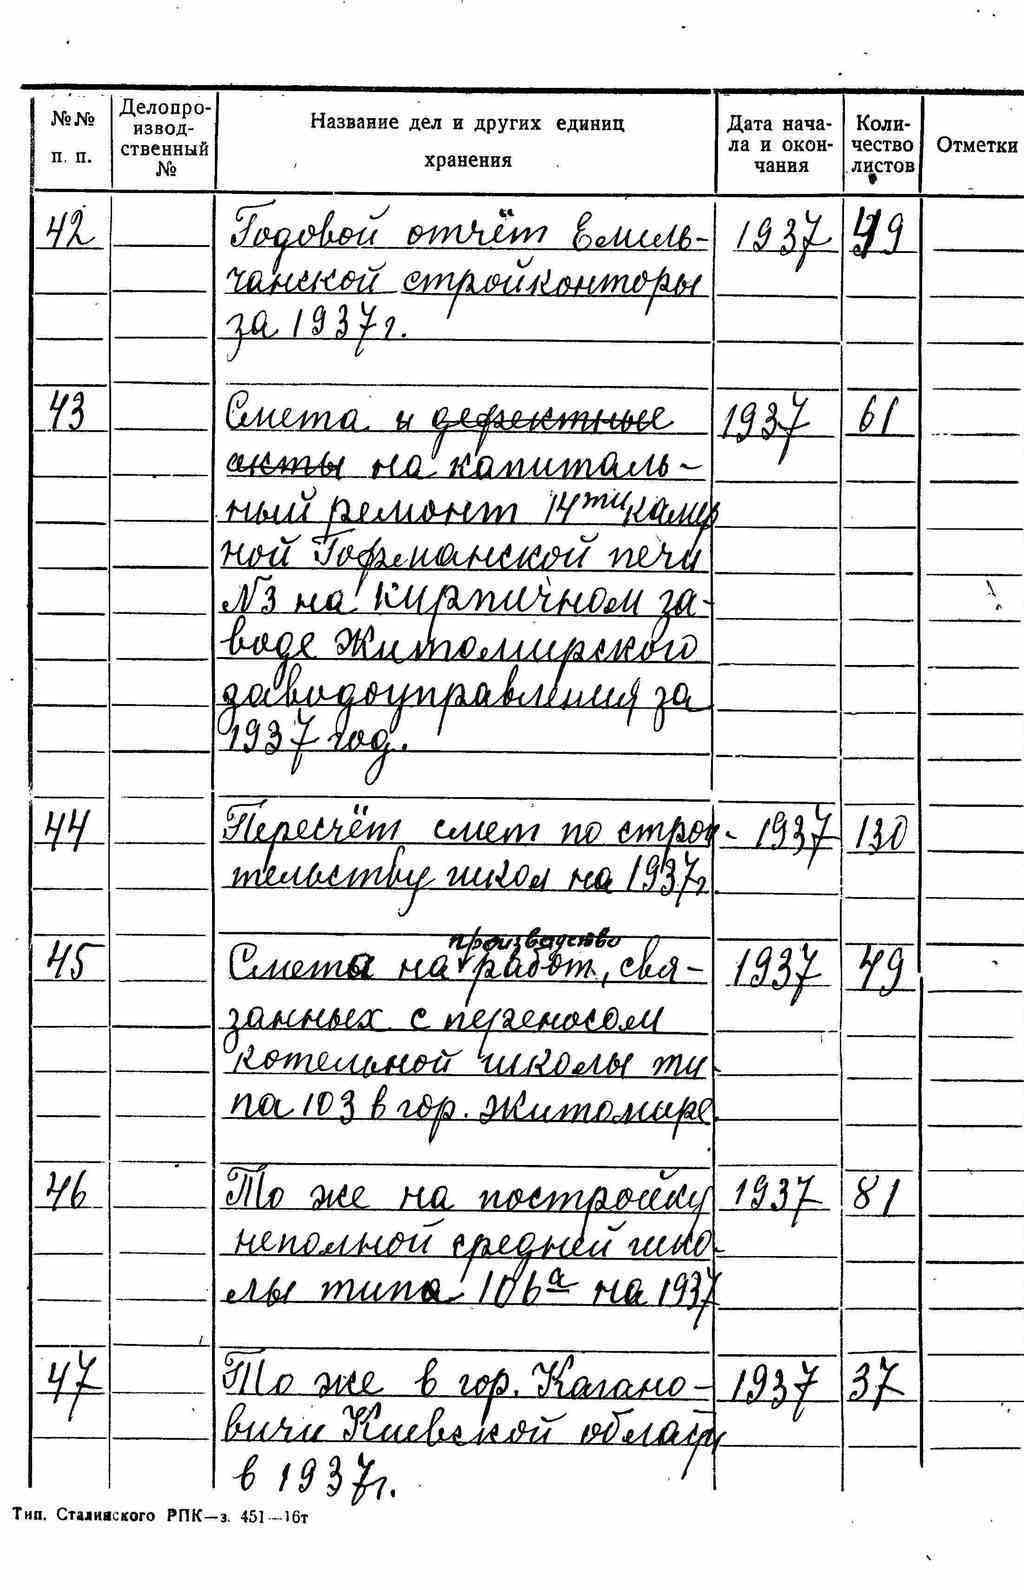 №№ п. п. Делопро-извод-ственный № Название дел и других единиц хранения Дата нача-ла и окон-чания Коли-чество листов Отметки
42 Годовой отчёт Емиль- 1937 49
чанской стройконторы
за 1937г.
43 Смета и дефектные 1937 61
акты на капиталь-
ный ремонт 14ти камер
ной Гофманской печи
№3 на кирпичном за-
воде Житомирского
заводоуправления за
1937 год.
44 Пересчёт смет по строи- 1937 130
тельству школ на 1937г.
производство
45 Смета на работ, свя- 1937 49
занных с переносом
котельной школы ти-
па 103 в гор. Житомире.
46 То же на постройку 1937 81
неполной средней шко-
лы типа 106а на 1937
47 То же в гор. Кагано- 1937 37
вичи Киевской области
в 1937г.
Тип. Сталинского РПК—з. 451—16т